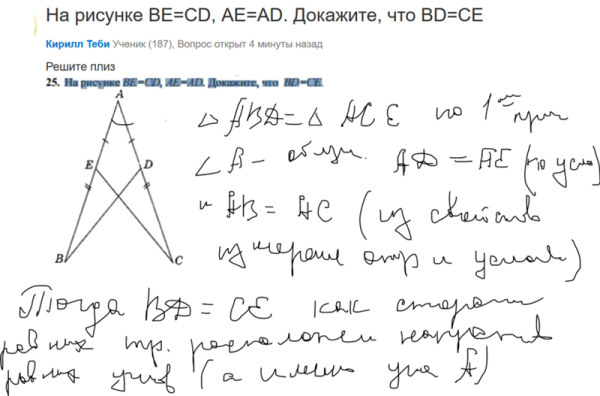 На рисунке BE=CD, AE=AD. Докажите, что BD=CE
Кирилл Теби Ученик (187), Вопрос открыт 4 минуты назад
Решите плиз
25. На рисунке BE=CD, AE=AD. Докажите, что BD=CE.
A
△ ABD = △ ACE по 1
∠ A - общ. AD = AE (по усл)
E D
и AB = AC (из свойств
B C
измерения отр и условия)
Тогда BD = CE как стороны
равных тр. расположен напротив
равных углов (а именно угла A)